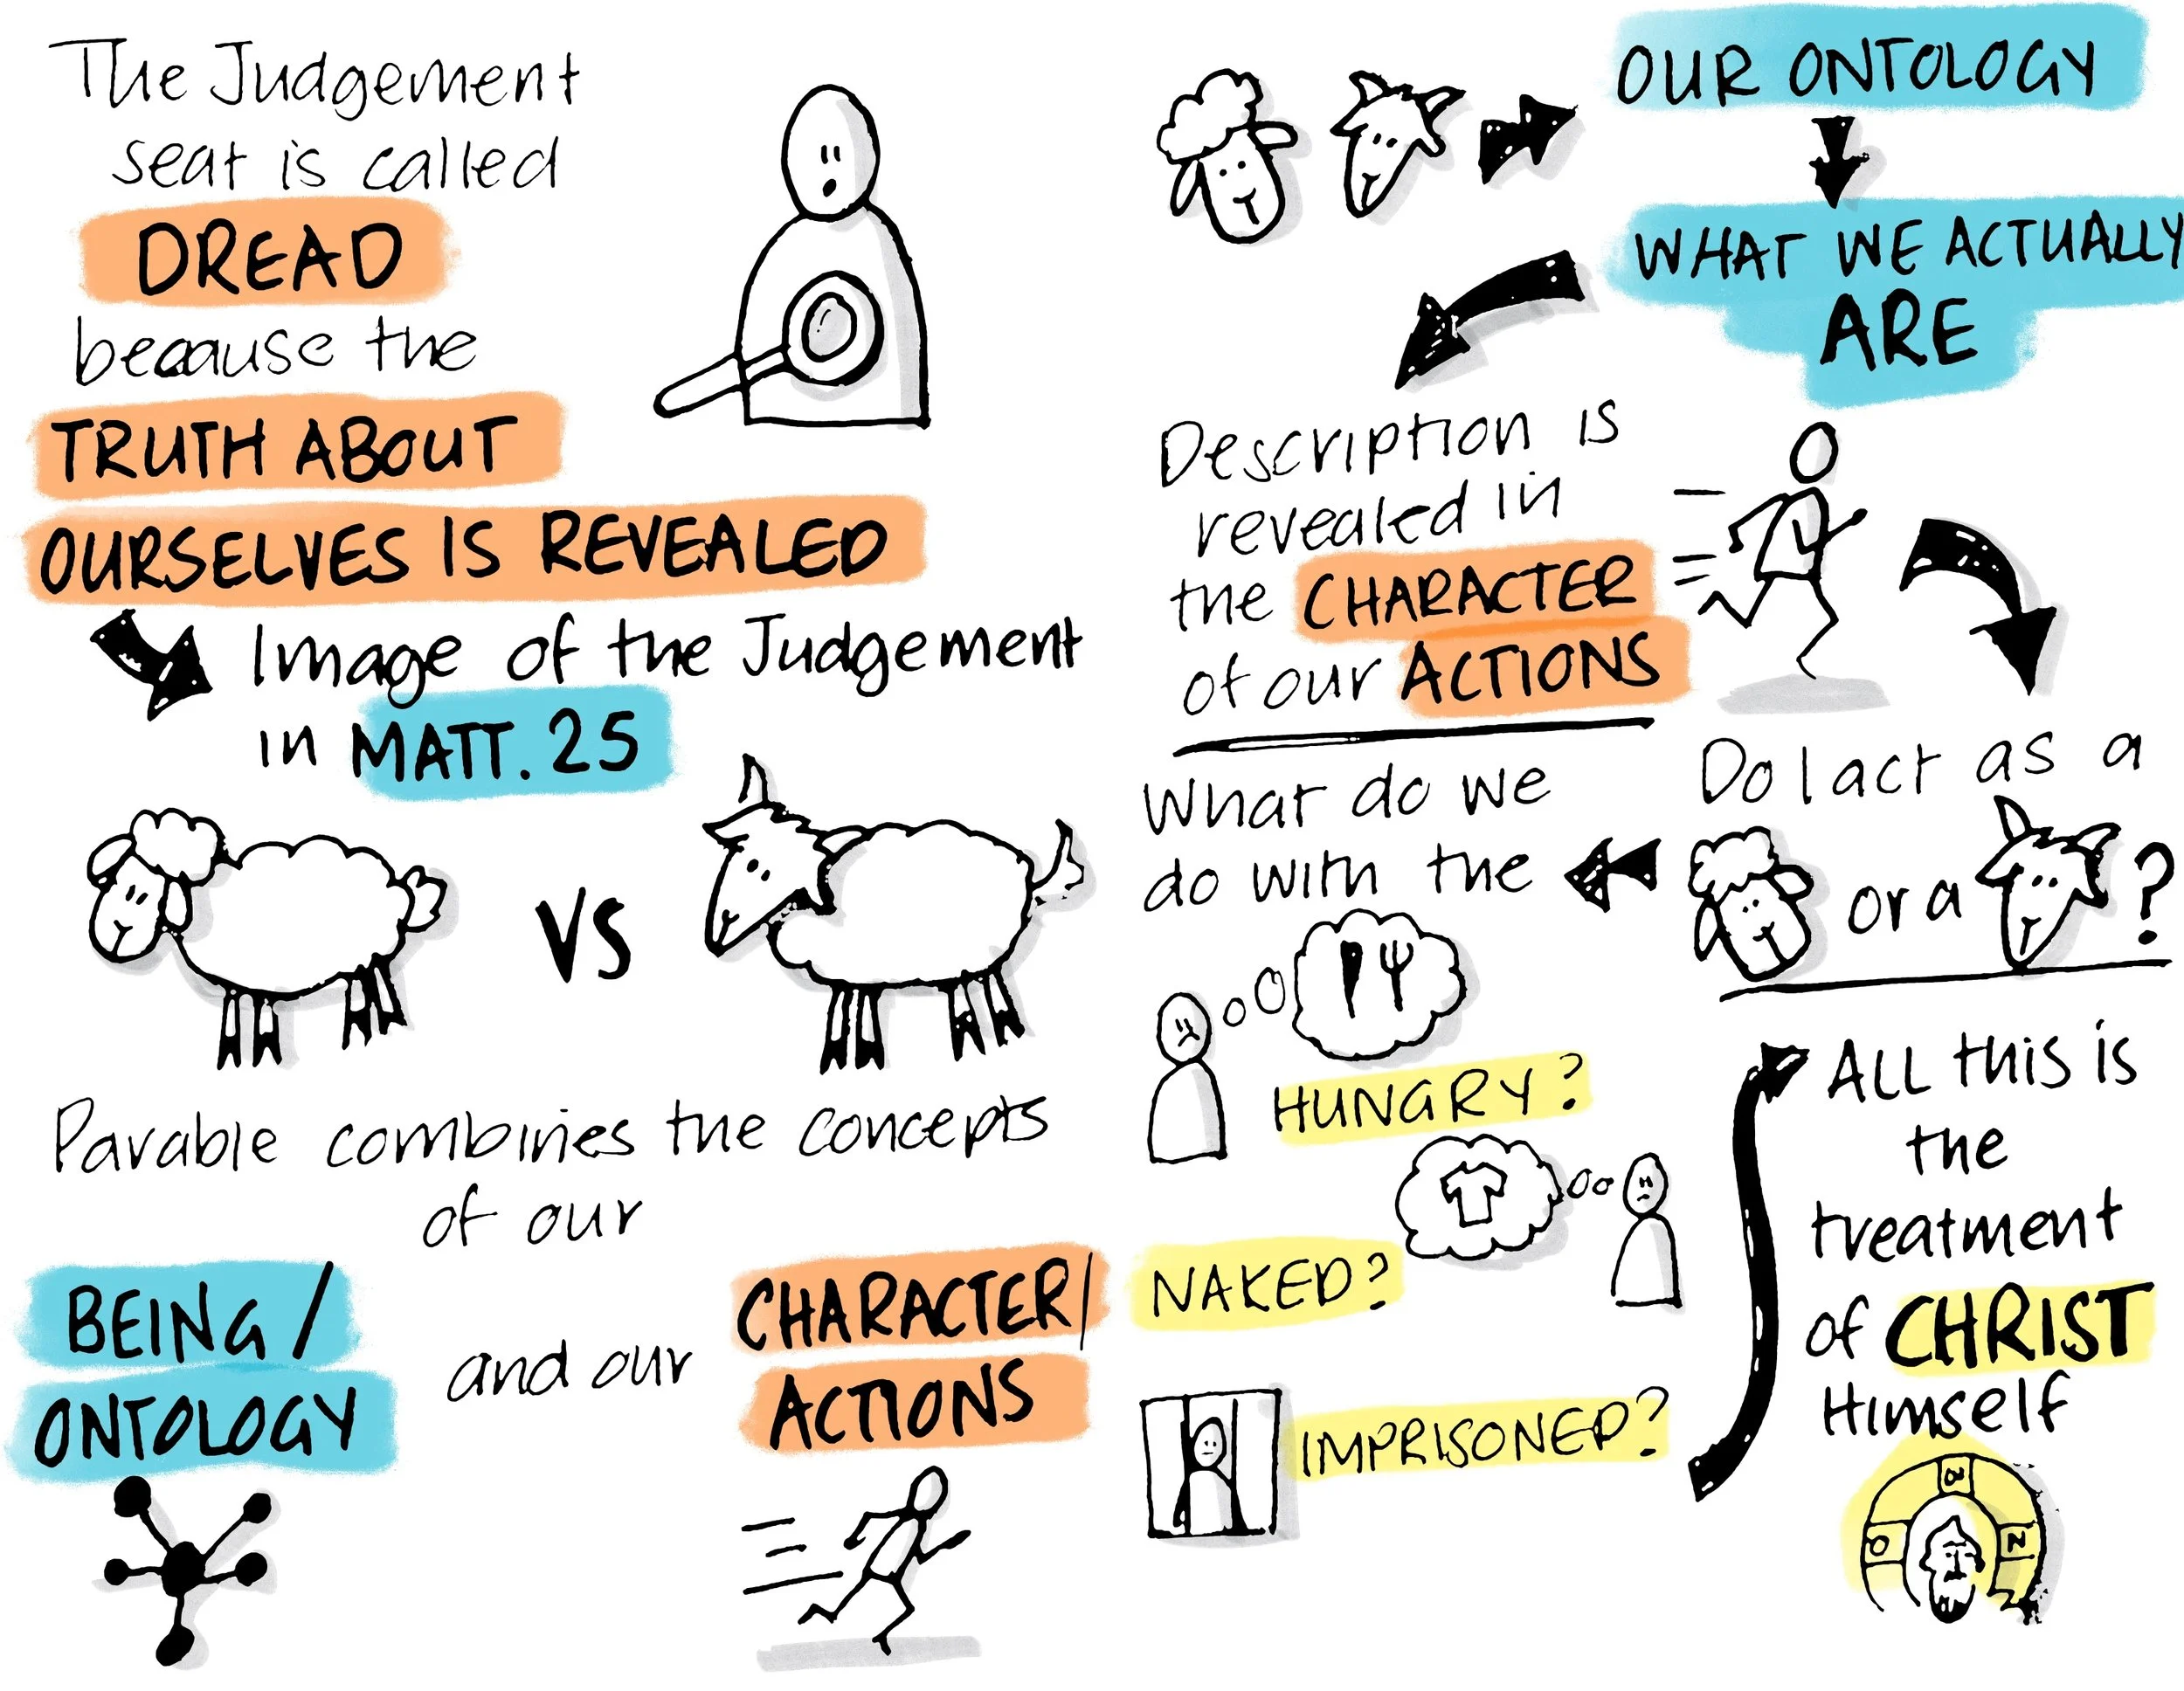 The Judgement
seat is called
DREAD
because the
TRUTH ABOUT
OURSELVES IS REVEALED
Image of the Judgement
in MATT. 25
VS
Parable combines the concepts
of our
BEING/
ONTOLOGY
and our
CHARACTER/
ACTIONS
OUR ONTOLOGY
WHAT WE ACTUALLY
ARE
Description is
revealed in
the CHARACTER
of our ACTIONS
Do I act as a
or a ?
What do we
do with the
HUNGRY?
NAKED?
IMPRISONED?
ALL this is
the
treatment
of CHRIST
Himself
O N